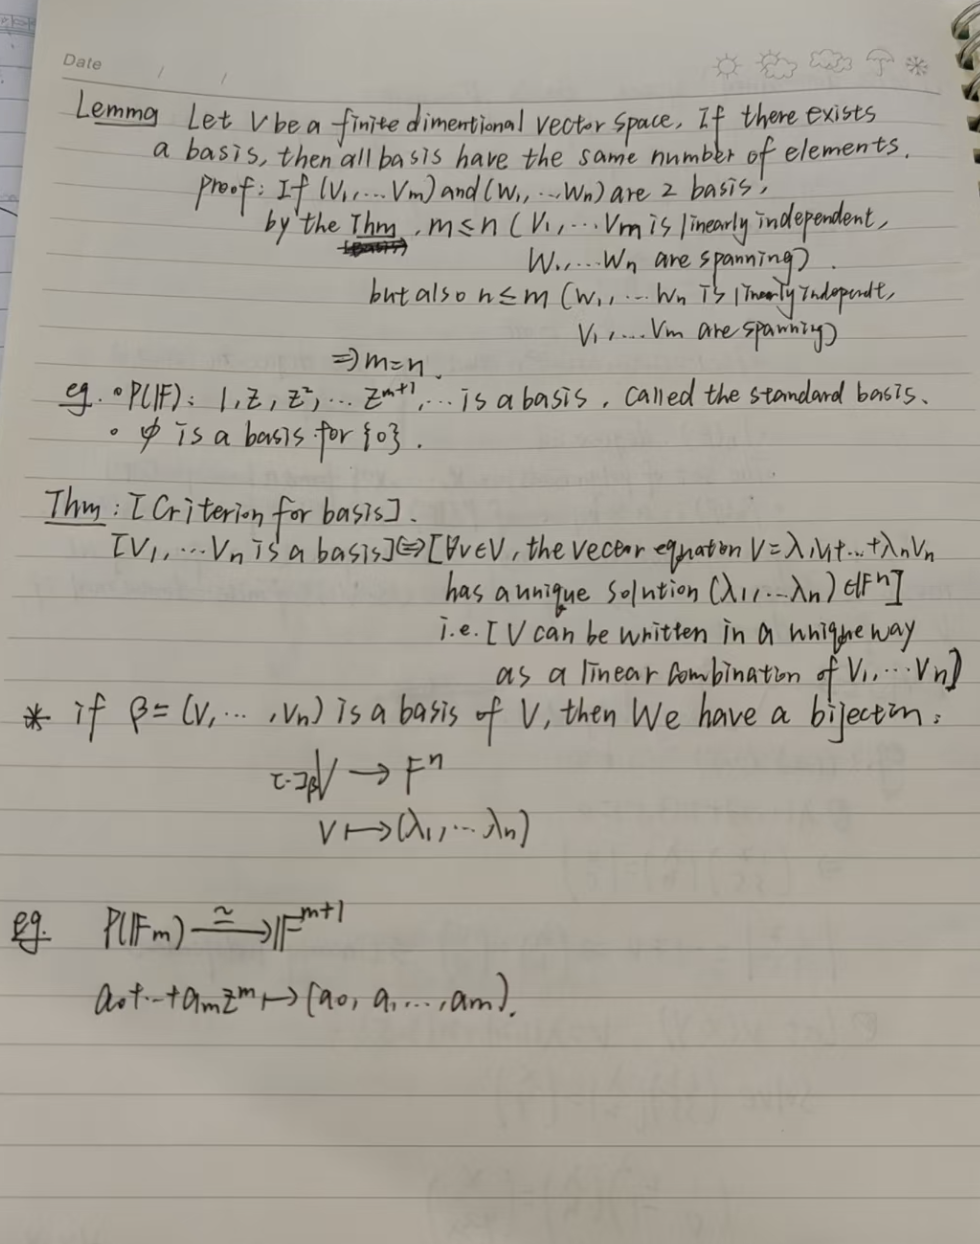 Date / /
Lemma Let V be a finite dimentional vector space, If there exists
a basis, then all basis have the same number of elements.
Proof: If (V₁,...Vm) and (W₁,...Wn) are 2 basis,
by the Thm, m≤n (V₁,...Vm is linearly independent,
W₁,...Wn are spanning)
but also n≤m (W₁,...Wn is linearly independt,
V₁,...Vm are spanning)
⇒ m=n.
eg. • P(F): 1, z, z², ... z^{m+1}, ... is a basis, called the standard basis.
• φ is a basis for {0}.
Thm: [Criterion for basis].
[V₁,...Vn is a basis] ⇔ [∀v∈V, the vector equation V=λ₁V₁+...+λnVn
has a unique solution (λ₁,...λn) ∈ Fⁿ]
i.e. [V can be written in a unique way
as a linear combination of V₁,...Vn]
* if β = (V, ... , Vn) is a basis of V, then We have a bijection:
[·]β V → Fⁿ
V ↦ (λ₁,...λn)
eg. P(Fm) ≃→ F^{m+1}
a₀+...+amz^m ↦ (a₀, a₁...,am).